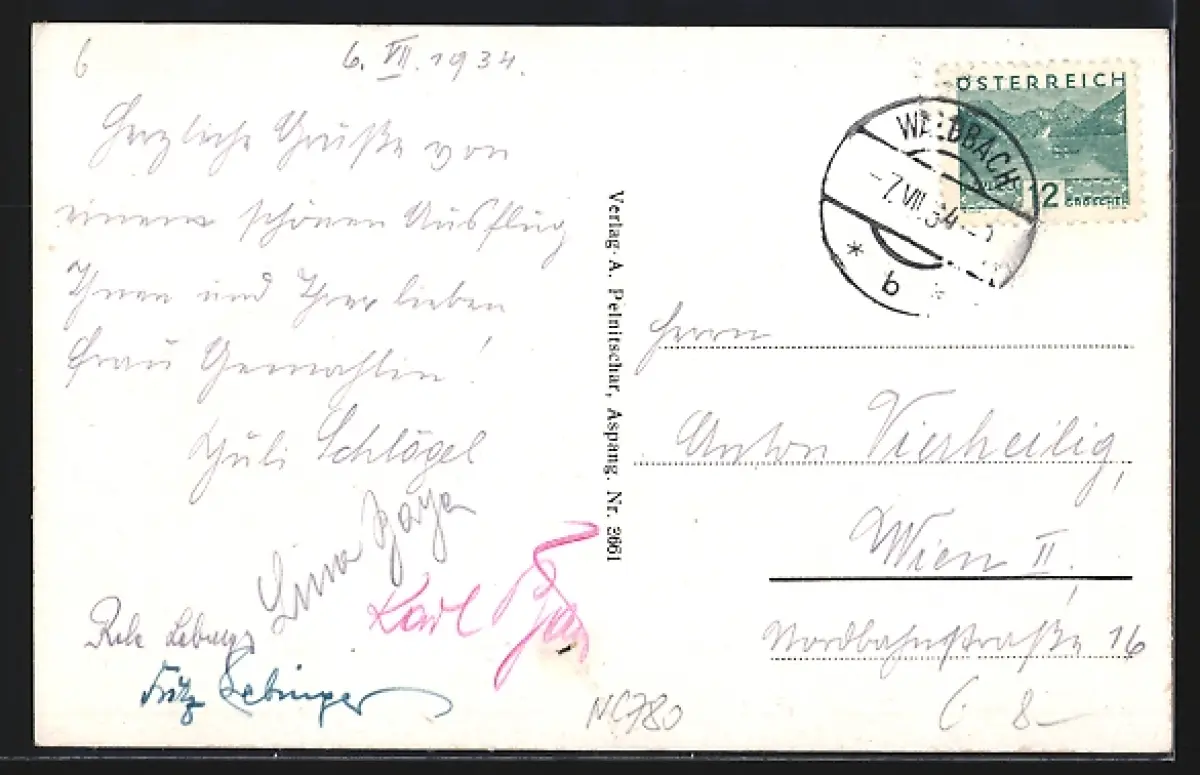 6
6. VII. 1934.
Herzliche Grüße von
einem schönen Ausflug
Ihnen und Ihrer lieben
Frau Gemahlin!
Juli Schlögel
Karl
Fritz Lebinger
Verlag A. Pelnitschar, Aspang. Nr. 3661
ÖSTERREICH
12
GROSCHEN
WALDBACH
-7.VII.34
* b *
Herrn
Anton Vierheilig,
Wien II,
Nordbahnstraße 16
NC780
8-